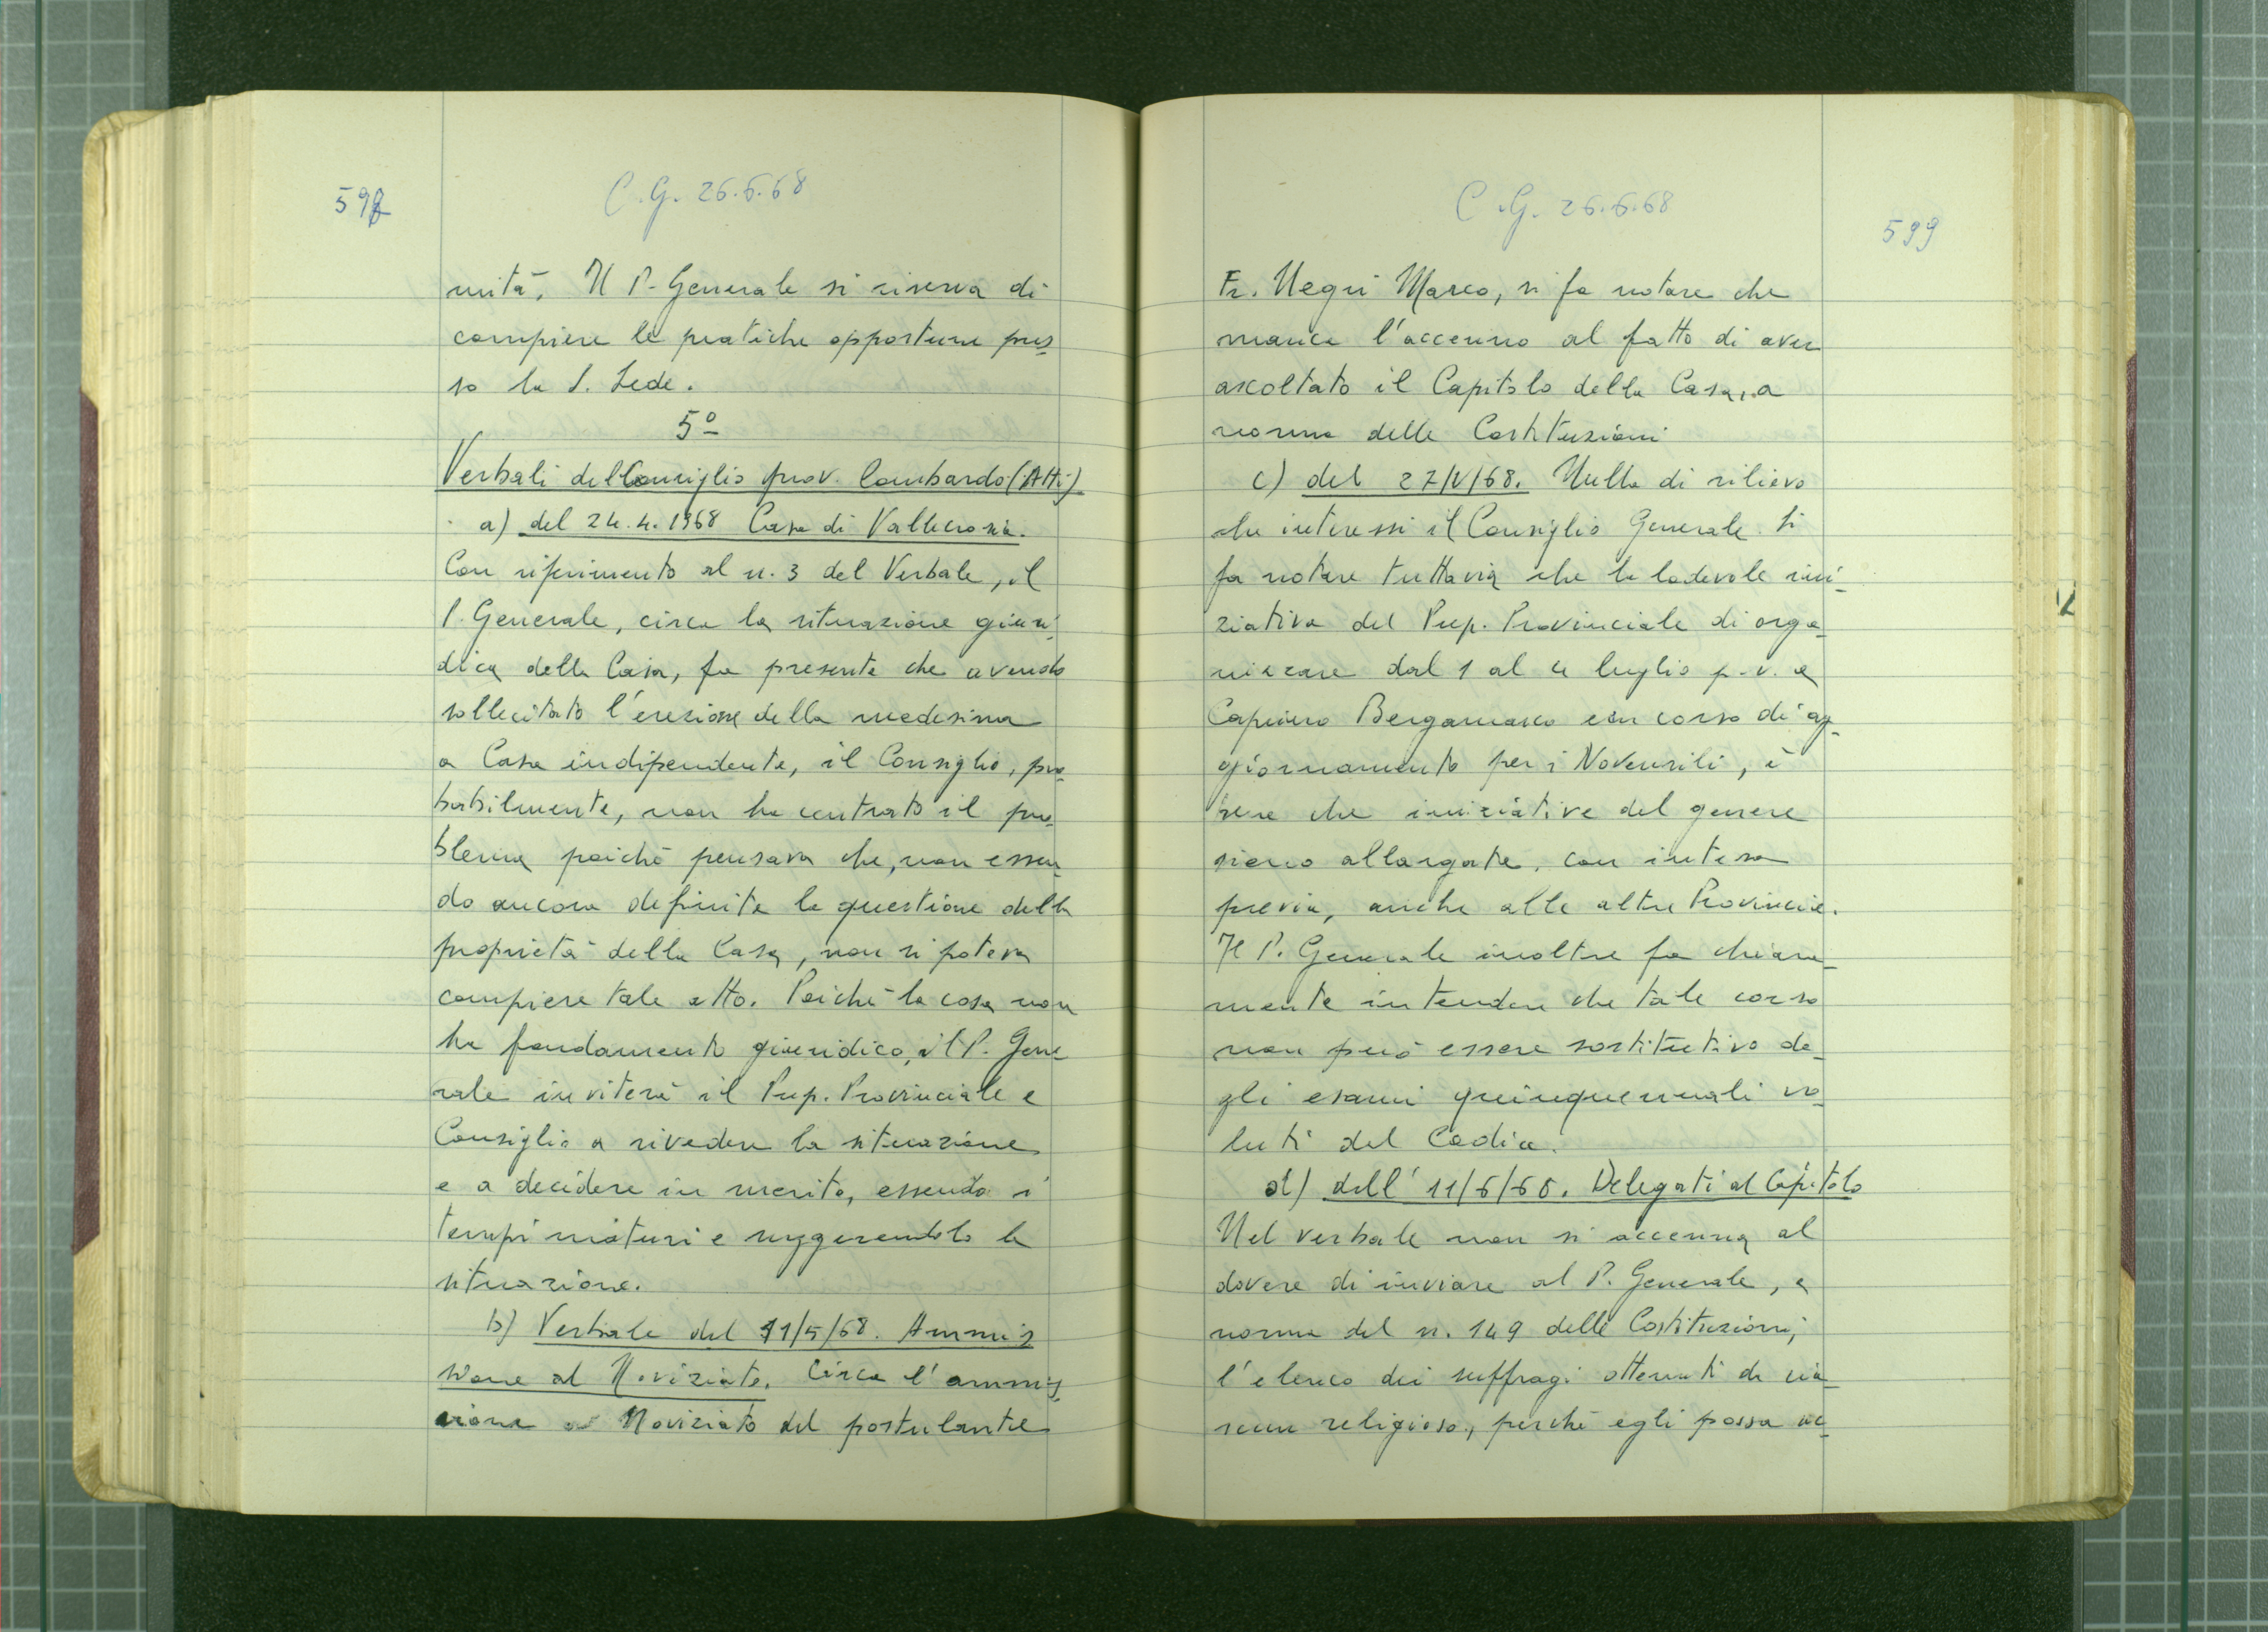 598
C.G. 26.6.68
nità. Il P. Generale si riserva di
compiere le pratiche opportune pres-
so la S. Sede.
5º
Verbali del Consiglio prov. Lombardo (Atti)
a) del 24.4.1968 Casa di Vallecrosia.
Con riferimento al n. 3 del Verbale, il
P. Generale, circa la situazione giuri-
dica della Casa, fa presente che avendo
sollecitato l'erezione della medesima
a Casa indipendente, il Consiglio, pro-
babilmente, non ha centrato il pro-
blema poichè pensava che, non essen-
do ancora definita la questione della
proprietà della Casa, non si poteva
compiere tale atto. Poichè la cosa non
ha fondamento giuridico, il P. Gene-
rale inviterà il Prep. Provinciale e
Consiglio a rivedere la situazione
e a decidere in merito, essendo i
tempi maturi e suggerendolo la
situazione.
b) Verbale del 11/5/68. Ammis-
sione al Noviziato. Circa l'ammis-
sione al Noviziato del postulante
C.G. 26.6.68
599
Fr. Negri Marco, si fa notare che
manca l'accenno al fatto di aver
ascoltato il Capitolo della Casa, a
norma delle Costituzioni
c) del 27/V/68. Nulla di rilievo
che interessi il Consiglio Generale. Si
fa notare tuttavia che la lodevole ini-
ziativa del Prep. Provinciale di orga-
nizzare dal 1 al 4 luglio p.v. a
Caprino Bergamasco un corso di ag-
giornamento per i Novensili, è
bene che iniziative del genere
siano allargate, con intesa
previa, anche alle altre Provincie.
Il P. Generale inoltre fa chiara-
mente intendere che tale corso
non può essere sostitutivo de-
gli esami quinquennali vo-
luti dal Codice.
d) dell'11/6/68. Delegati al Capitolo
Nel verbale non si accenna al
dovere di inviare al P. Generale, a
norma del n. 149 delle Costituzioni,
l'elenco dei suffragi ottenuti da cia-
scun religioso, perchè egli possa ac-